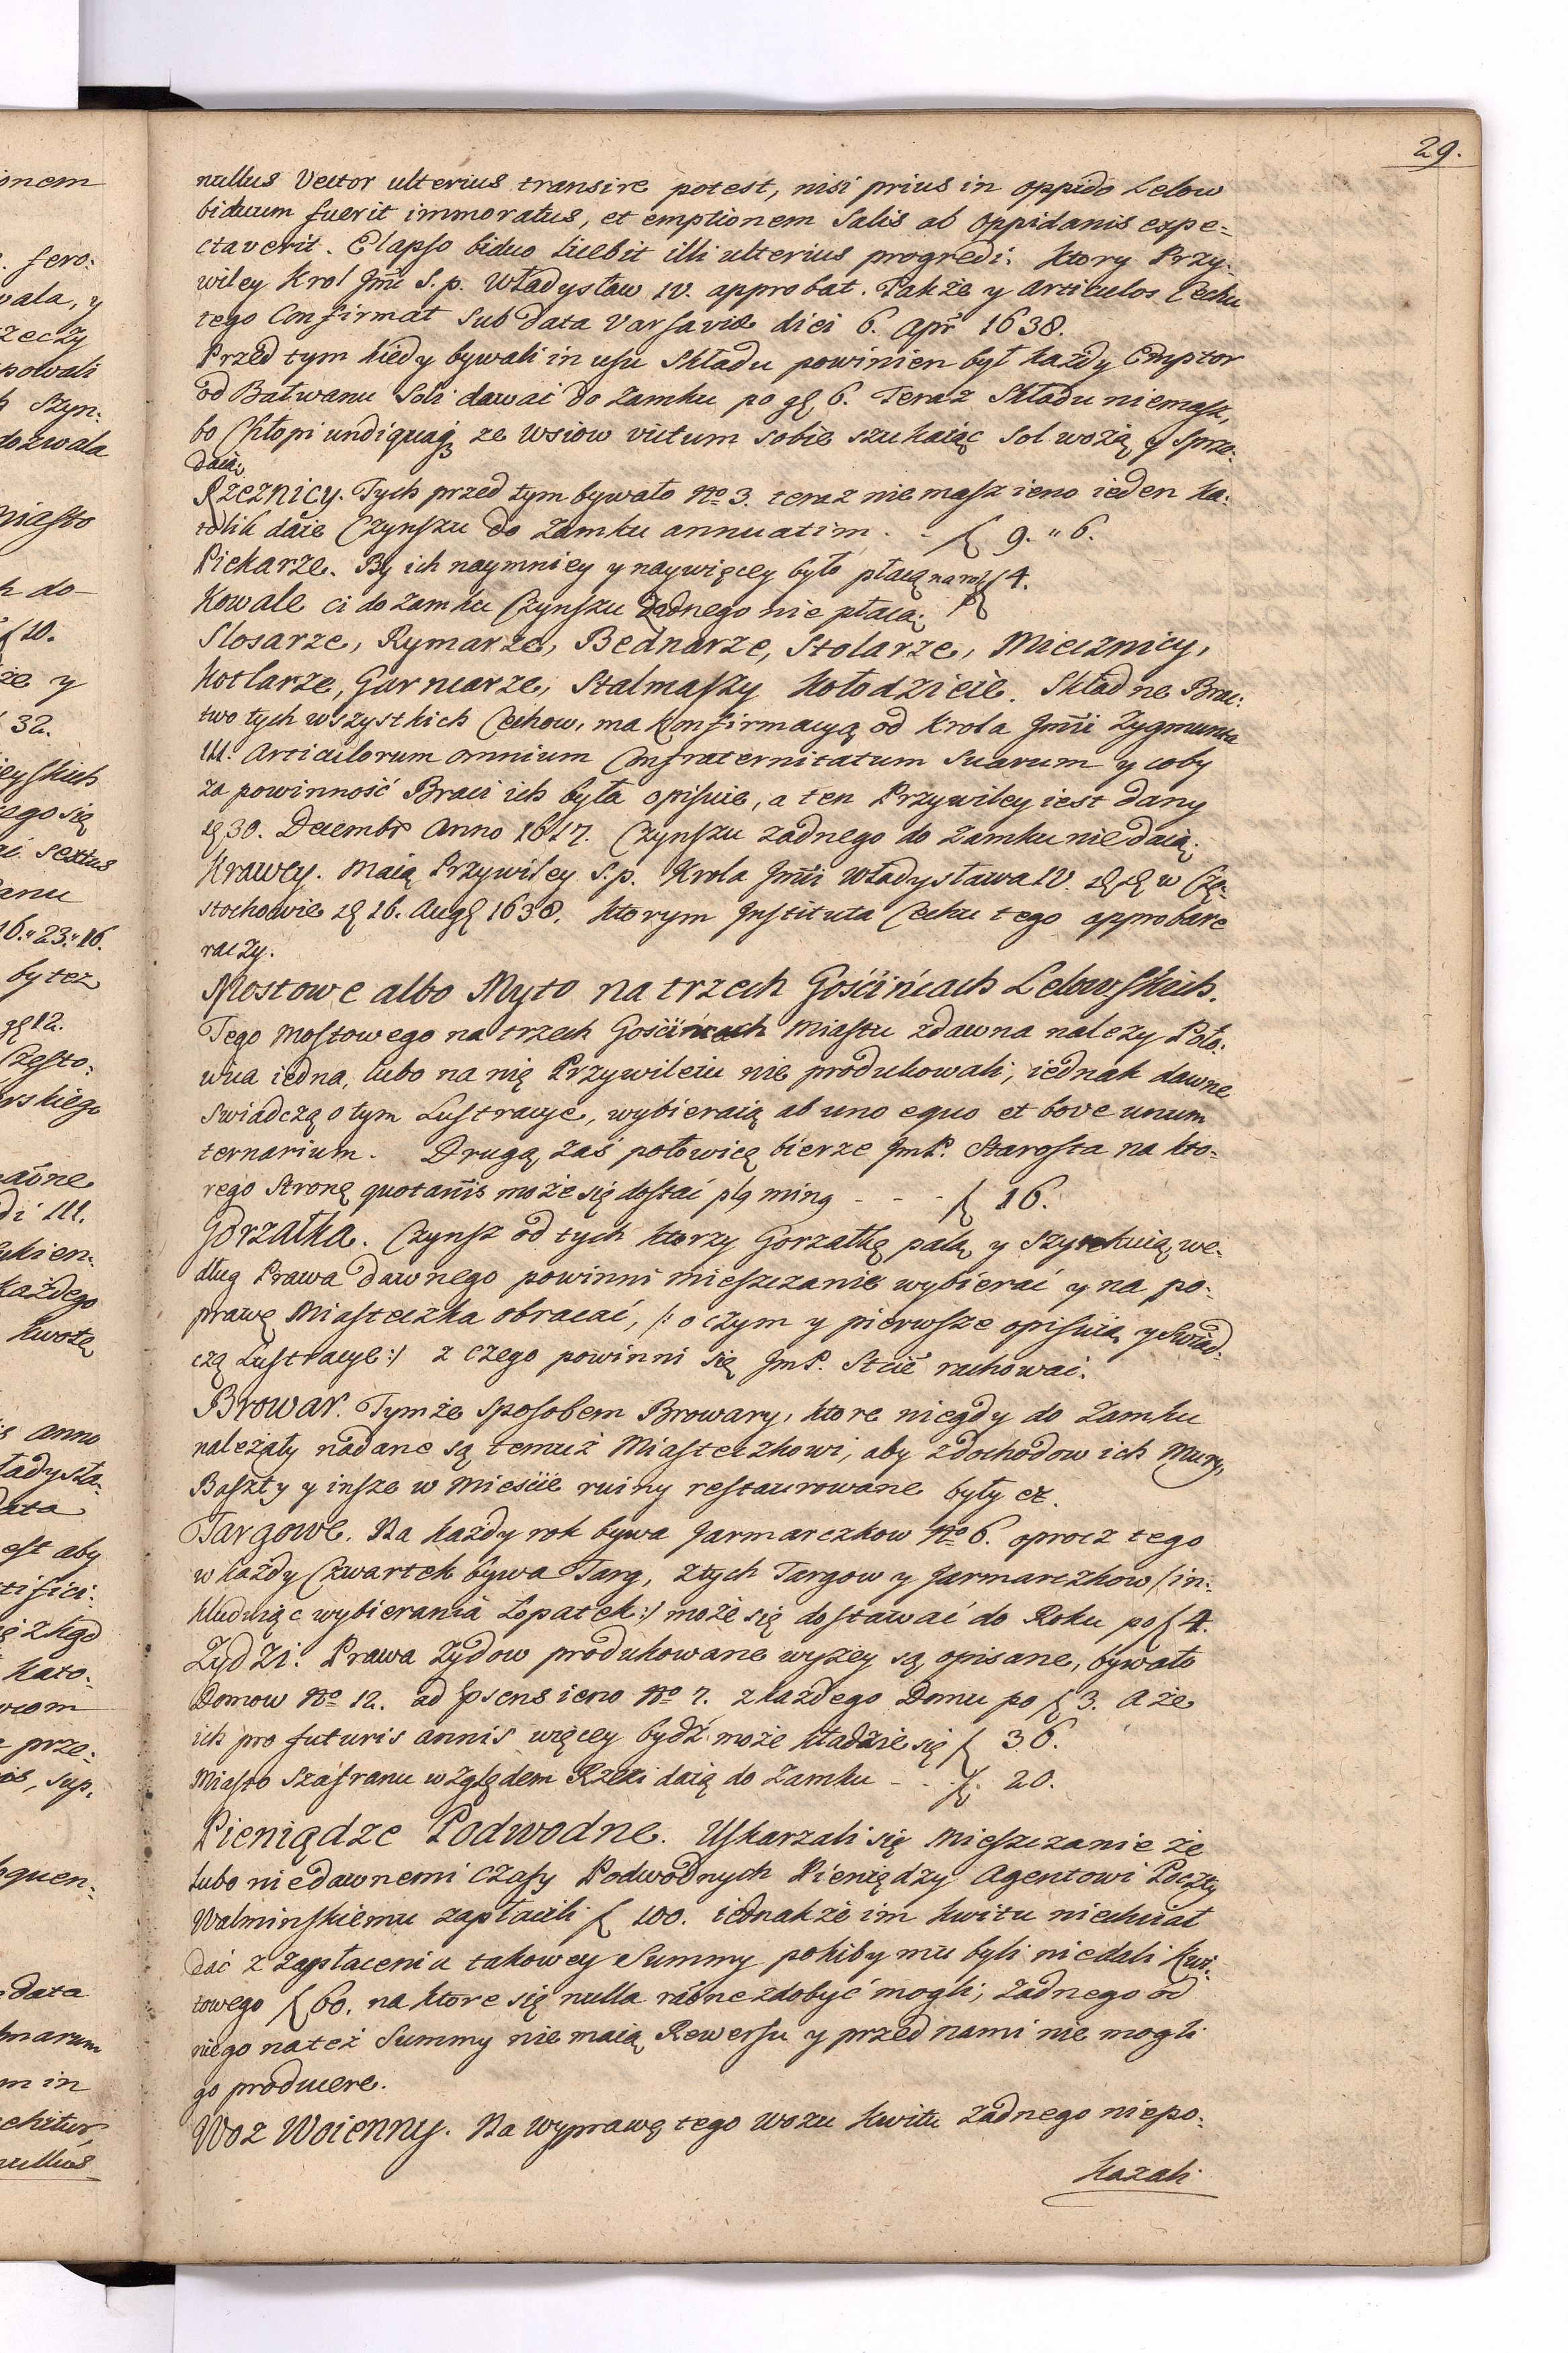 29.
nullus Vector ulterius transire potest, nisi prius in oppido Lelow
biduum fuerit immoratus, et emptionem Salis ab Oppidanis expe=
ctaverit. Elapso biduo licebit illi ulterius progredi. Ktory Przy:
wiley Krol Jmci S. p. Władysław IV. approbat. Także y Articulos Cechu
tego Confirmat Sub Data Varsaviæ diei 6. Apr 1638.
Przed tym kiedy bywali in usu Składu powinien był każdy Emptor
od Bałwanu Soli dawać do Zamku po gl 6. Teraz Składu niemasz,
bo Chłopi undiquaq ze Wsiow victum sobie szukaiąc Sol wożą y sprze:
daią.
Rzeznicy. Tych przed tym bywało No 3. teraz nie masz ieno ieden Ka:
tolik daie Czynszu do Zamku annuatim . - f 9. " 6.
Piekarze. By ich naymniey y naywięcey było płacą na rok f 4.
Kowale ci do Zamku Czynszu Żadnego nie płacą.
Slosarze, Rymarze, Bednarze, Stolarze, Miecznicy,
Kotlarze, Garncarze, Stalmaszy Kołodzieie. Składne Brac:
two tych wszystkich Cechow, ma Konfirmacyą od Krola Jmci Zygmunta
III. Articulorum omnium Confraternitatum Suarum y coby
za powinność Braci ich była opisuie, a ten Przywiley iest dany
30. Decembr Anno 1617. Czynszu zadnego do Zamku nie daią.
Krawcy. Maią Przywiley S. p. Krola Jmci Władysława IV. w Czę:
stochowie 26. Aug 1638. ktorym Instituta Cechu tego approbare
raczy.
Mostowe albo Myto na trzech Gościńcach Lelowskich.
Tego Mostowego na trzech Gościńcach Miastu zdawna nalezy Poło:
wica iedna, lubo na nię Przywileiu nie produkowali, iednak dawne
swiadczą o tym Lustracye, wybieraią ab uno equo et bove unum
ternarium. Drugą zaś połowicę bierze JmP. Starosta na kto:
rego Stronę quotannis może się dostać - - - f 16.
Gorzałka. Czynsz od tych ktorzy Gorzałkę palą y szynkuią we:
dług Prawa dawnego powinni mieszczanie wybierać y na po:
prawę Miasteczka obracać, /: o czym y pierwsze opisuią y Swiad:
czą Lustracye :/ z czego powinni się JmP. Stcie rachować.
Browar. Tymże sposobem Browary, ktore niegdy do Zamku
należały nadane są temuż Miasteczkowi, aby z dochodow ich Mury,
Baszty y insze w Mieście ruiny restaurowane były .
Targowe. Na każdy rok bywa Jarmarczkow No 6. oprocz tego
w każdy Czwartek bywa Targ, z tych Targow y Jarmarczkow /: in:
kluduiąc wybierania Łopatek :/ może się dostawać do Roku po f 4.
Zydzi. Prawa Zydow produkowane wyzey są opisane, bywało
Domow No 12. ad Jpsens ieno No 7. z każdego Domu po f 3. A że
ich pro futuris annis więcey bydź może kładzie się f 36.
Miasto Szafranu względem Rzezi daią do Zamku - - . 20.
Pieniądze Podwodne. Uskarzali się Mieszczanie że
lubo niedawnemi czasy Podwodnych Pieniędzy Agentowi Poczty
Walminskiemu zapłacili f 100. iednakże im kwitu niechciał
dać z Zapłacenia takowey Summy pokiby mu byli niedali Kwi:
towego f 60. na ktore się nulla rátne zdobyć mogli, Zadnego od
niego na też Summy nie maią Rewersu y przed nami nie mogli
go producere.
Woz Woienny. Na wyprawę tego wozu kwitu żadnego niepo:
kazali